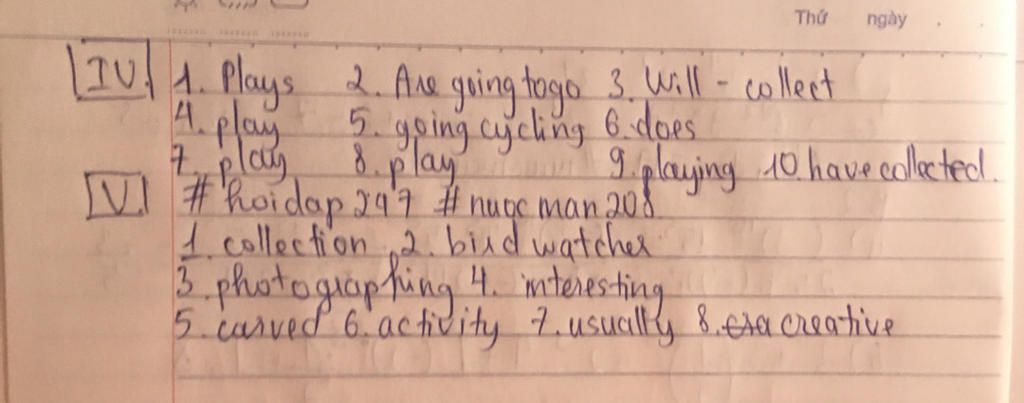 Thứ ngày
IV. 1. Plays 2. Are going to go 3. Will - collect
4. play 5. going cycling 6. does
7. play 8. play 9. playing 10. have collected.
V. # hoidap 247 # nugc man 208
1. collection 2. bird watcher
3. photographing 4. interesting
5. carved 6. activity 7. usually 8. creative